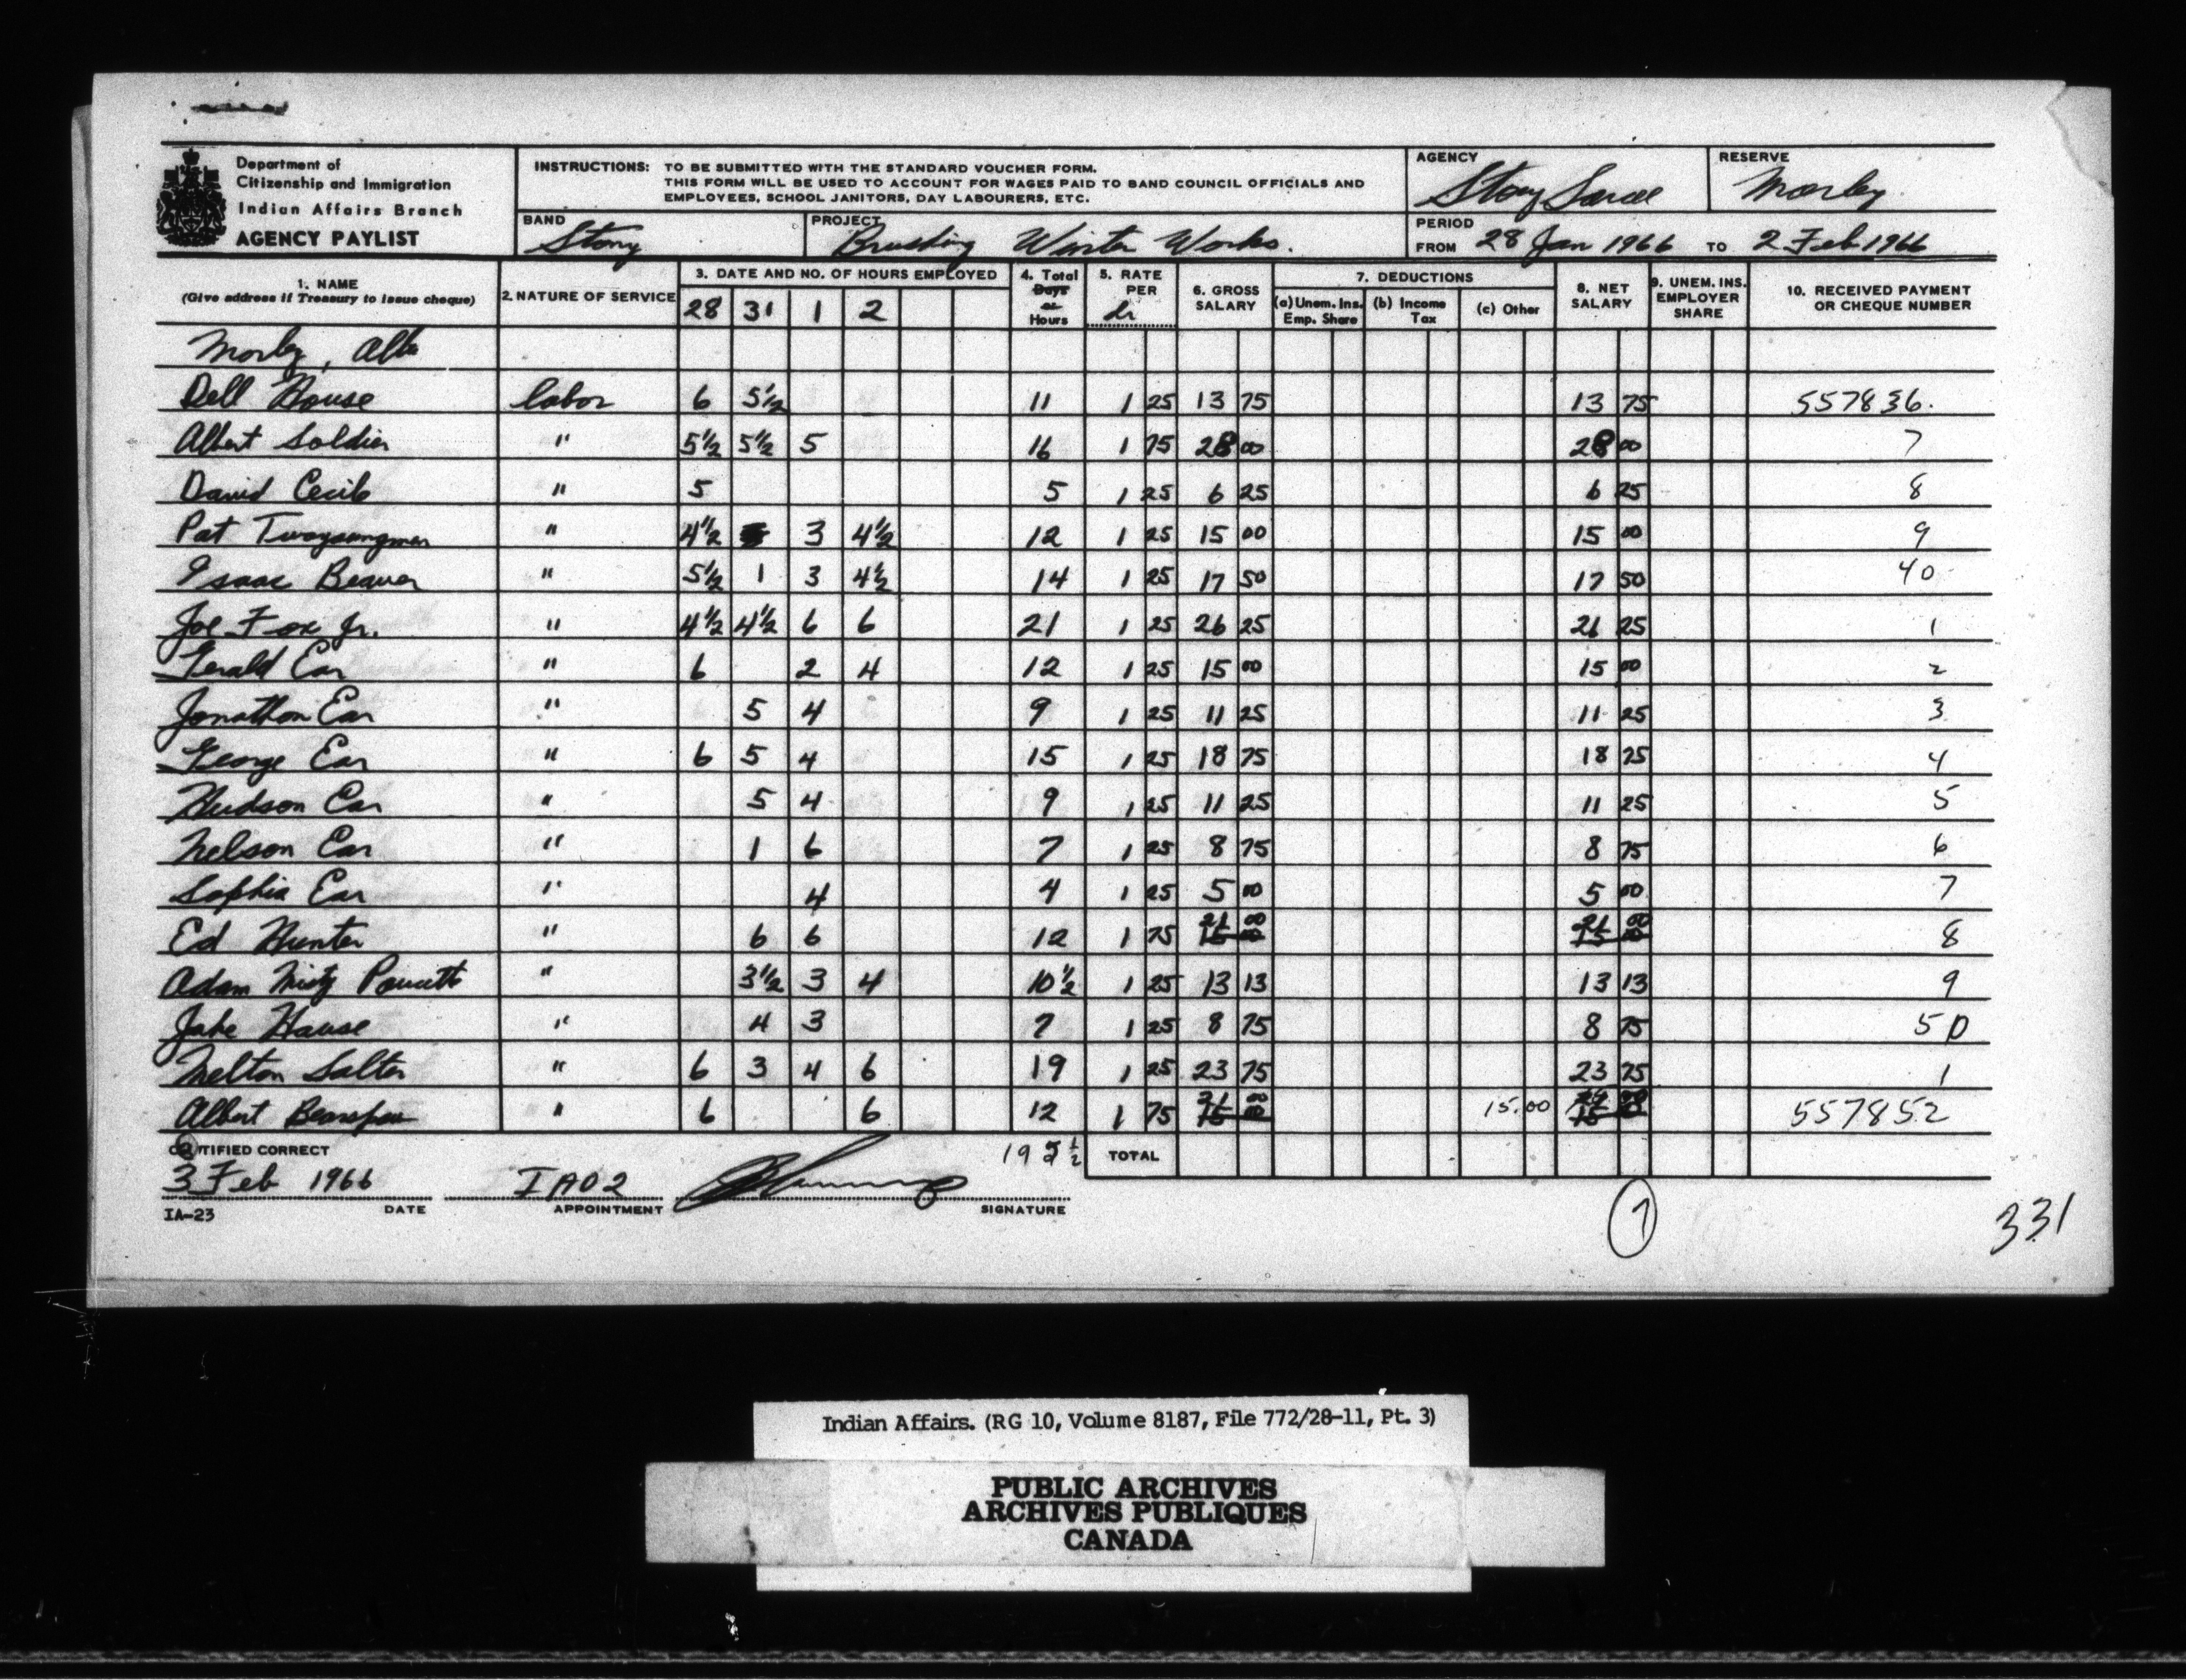 Department of
Citizenship and Immigration
Indian Affairs Branch
AGENCY PAYLIST
INSTRUCTIONS: TO BE SUBMITTED WITH THE STANDARD VOUCHER FORM.
THIS FORM WILL BE USED TO ACCOUNT FOR WAGES PAID TO BAND COUNCIL OFFICIALS AND
EMPLOYEES, SCHOOL JANITORS, DAY LABOURERS, ETC.
AGENCY Stony Sarcee
RESERVE Morley
BAND Stony
PROJECT Brushing Winter Works.
PERIOD FROM 28 Jan 1966 TO 2 Feb 1966
1. NAME (Give address if Treasury to issue cheque) 2. NATURE OF SERVICE 3. DATE AND NO. OF HOURS EMPLOYED 28 31 1 2 4. Total Days or Hours 5. RATE PER hr 6. GROSS SALARY 7. DEDUCTIONS (a) Unem. Ins. Emp. Share (b) Income Tax (c) Other 8. NET SALARY 9. UNEM. INS. EMPLOYER SHARE 10. RECEIVED PAYMENT OR CHEQUE NUMBER
Morley, Alta
Dell House labor 6 5½ 11 1 25 13 75 13 75 557836.
Albert Soldier " 5½ 5½ 5 16 1 75 28 00 28 00 7
David Cecil " 5 5 1 25 6 25 6 25 8
Pat Twoyoungmen " 4½ 3 4½ 12 1 25 15 00 15 00 9
Isaac Beaver " 5½ 1 3 4½ 14 1 25 17 50 17 50 40
Joe Fox Jr. " 4½ 4½ 6 6 21 1 25 26 25 26 25 1
Gerald Ear " 6 2 4 12 1 25 15 00 15 00 2
Jonathon Ear " 5 4 9 1 25 11 25 11 25 3
George Ear " 6 5 4 15 1 25 18 75 18 75 4
Hudson Ear " 5 4 9 1 25 11 25 11 25 5
Nelson Ear " 1 6 7 1 25 8 75 8 75 6
Sophia Ear " 4 4 1 25 5 00 5 00 7
Ed Hunter " 6 6 12 1 75 21 00 15 00 21 00 15 00 8
Adam Misty " 3½ 3 4 10½ 1 25 13 13 13 13 9
Jake House " 4 3 7 1 25 8 75 8 75 50
Melton Salter " 6 3 4 6 19 1 25 23 75 23 75 1
Albert Bearspaw " 6 6 12 1 75 21 00 15 00 15.00 557852
CERTIFIED CORRECT 195½ TOTAL
3 Feb 1966 IAO2
IA-23 DATE APPOINTMENT SIGNATURE
1
331
Indian Affairs. (RG 10, Volume 8187, File 772/28-11, Pt. 3)
PUBLIC ARCHIVES
ARCHIVES PUBLIQUES
CANADA